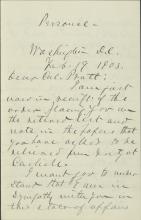 Personal.
Washington D.C.
Feb. 19, 1903.
Dear Col. Pratt:
I am just
now in receipt of the
order placing you on
the retired list and
note in the papers that
you have asked to be
relieved from duty at
Carlisle.
I want you to under-
stand that I am in
sympathy with you in
this state of affairs